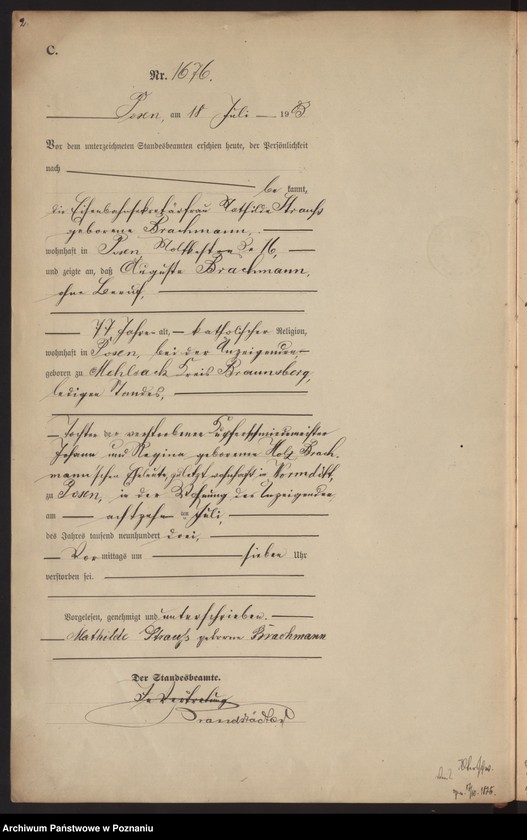 2
C.
Nr. 1676.
Posen, am 18 Juli 1903.
Vor dem unterzeichneten Standesbeamten erschien heute, der Persönlichkeit
nach
be kannt,
die Eisenbahnsekretärfrau Mathilde Strauß
geborene Brachmann,
wohnhaft in Posen, 16,
und zeigte an, daß Auguste Brachmann,
ohne Beruf,
77 Jahre alt, katholischer Religion,
wohnhaft in Posen, bei der Anzeigenden
geboren zu Mehlsack Kreis Braunsberg,
ledigen Standes,
Tochter der verstorbenen Kupferschmiedemeister
Johann und Regina geborene Brach-
mann'schen Eheleute, zuletzt wohnhaft in Wormditt,
zu Posen, in der Wohnung der Anzeigenden
am achtzehn ten Juli,
des Jahres tausend neunhundert drei,
Vor mittags um sieben Uhr
verstorben sei.
Vorgelesen, genehmigt und unterschrieben.
Mathilde Strauß geborene Brachmann
Der Standesbeamte.
In Vertretung
Brandstädter
Archiwum Państwowe w Poznaniu